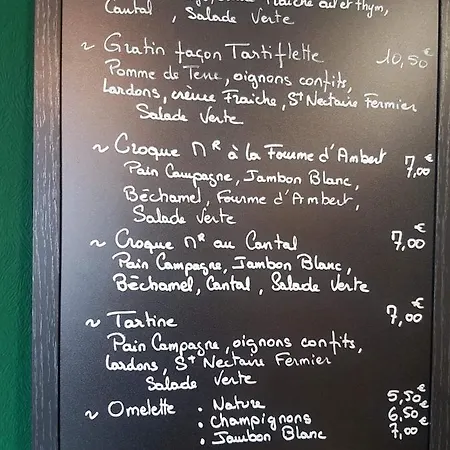 Fraîche ail et thym,
Cantal , Salade Verte
~ Gratin façon Tartiflette 10,50€
Pomme de Terre, oignons confits,
Lardons, crème Fraîche, St Nectaire Fermier
Salade Verte
~ Croque Mr à la Fourme d'Ambert 7,00€
Pain Campagne, Jambon Blanc,
Béchamel, Fourme d'Ambert,
Salade Verte
~ Croque Mr au Cantal 7,00€
Pain Campagne, Jambon Blanc,
Béchamel, Cantal , Salade Verte
~ Tartine 7,00€
Pain Campagne, oignons confits,
Lardons, St Nectaire Fermier
Salade Verte
~ Omelette . Nature 5,50€
. Champignons 6,50€
. Jambon Blanc 7,00€